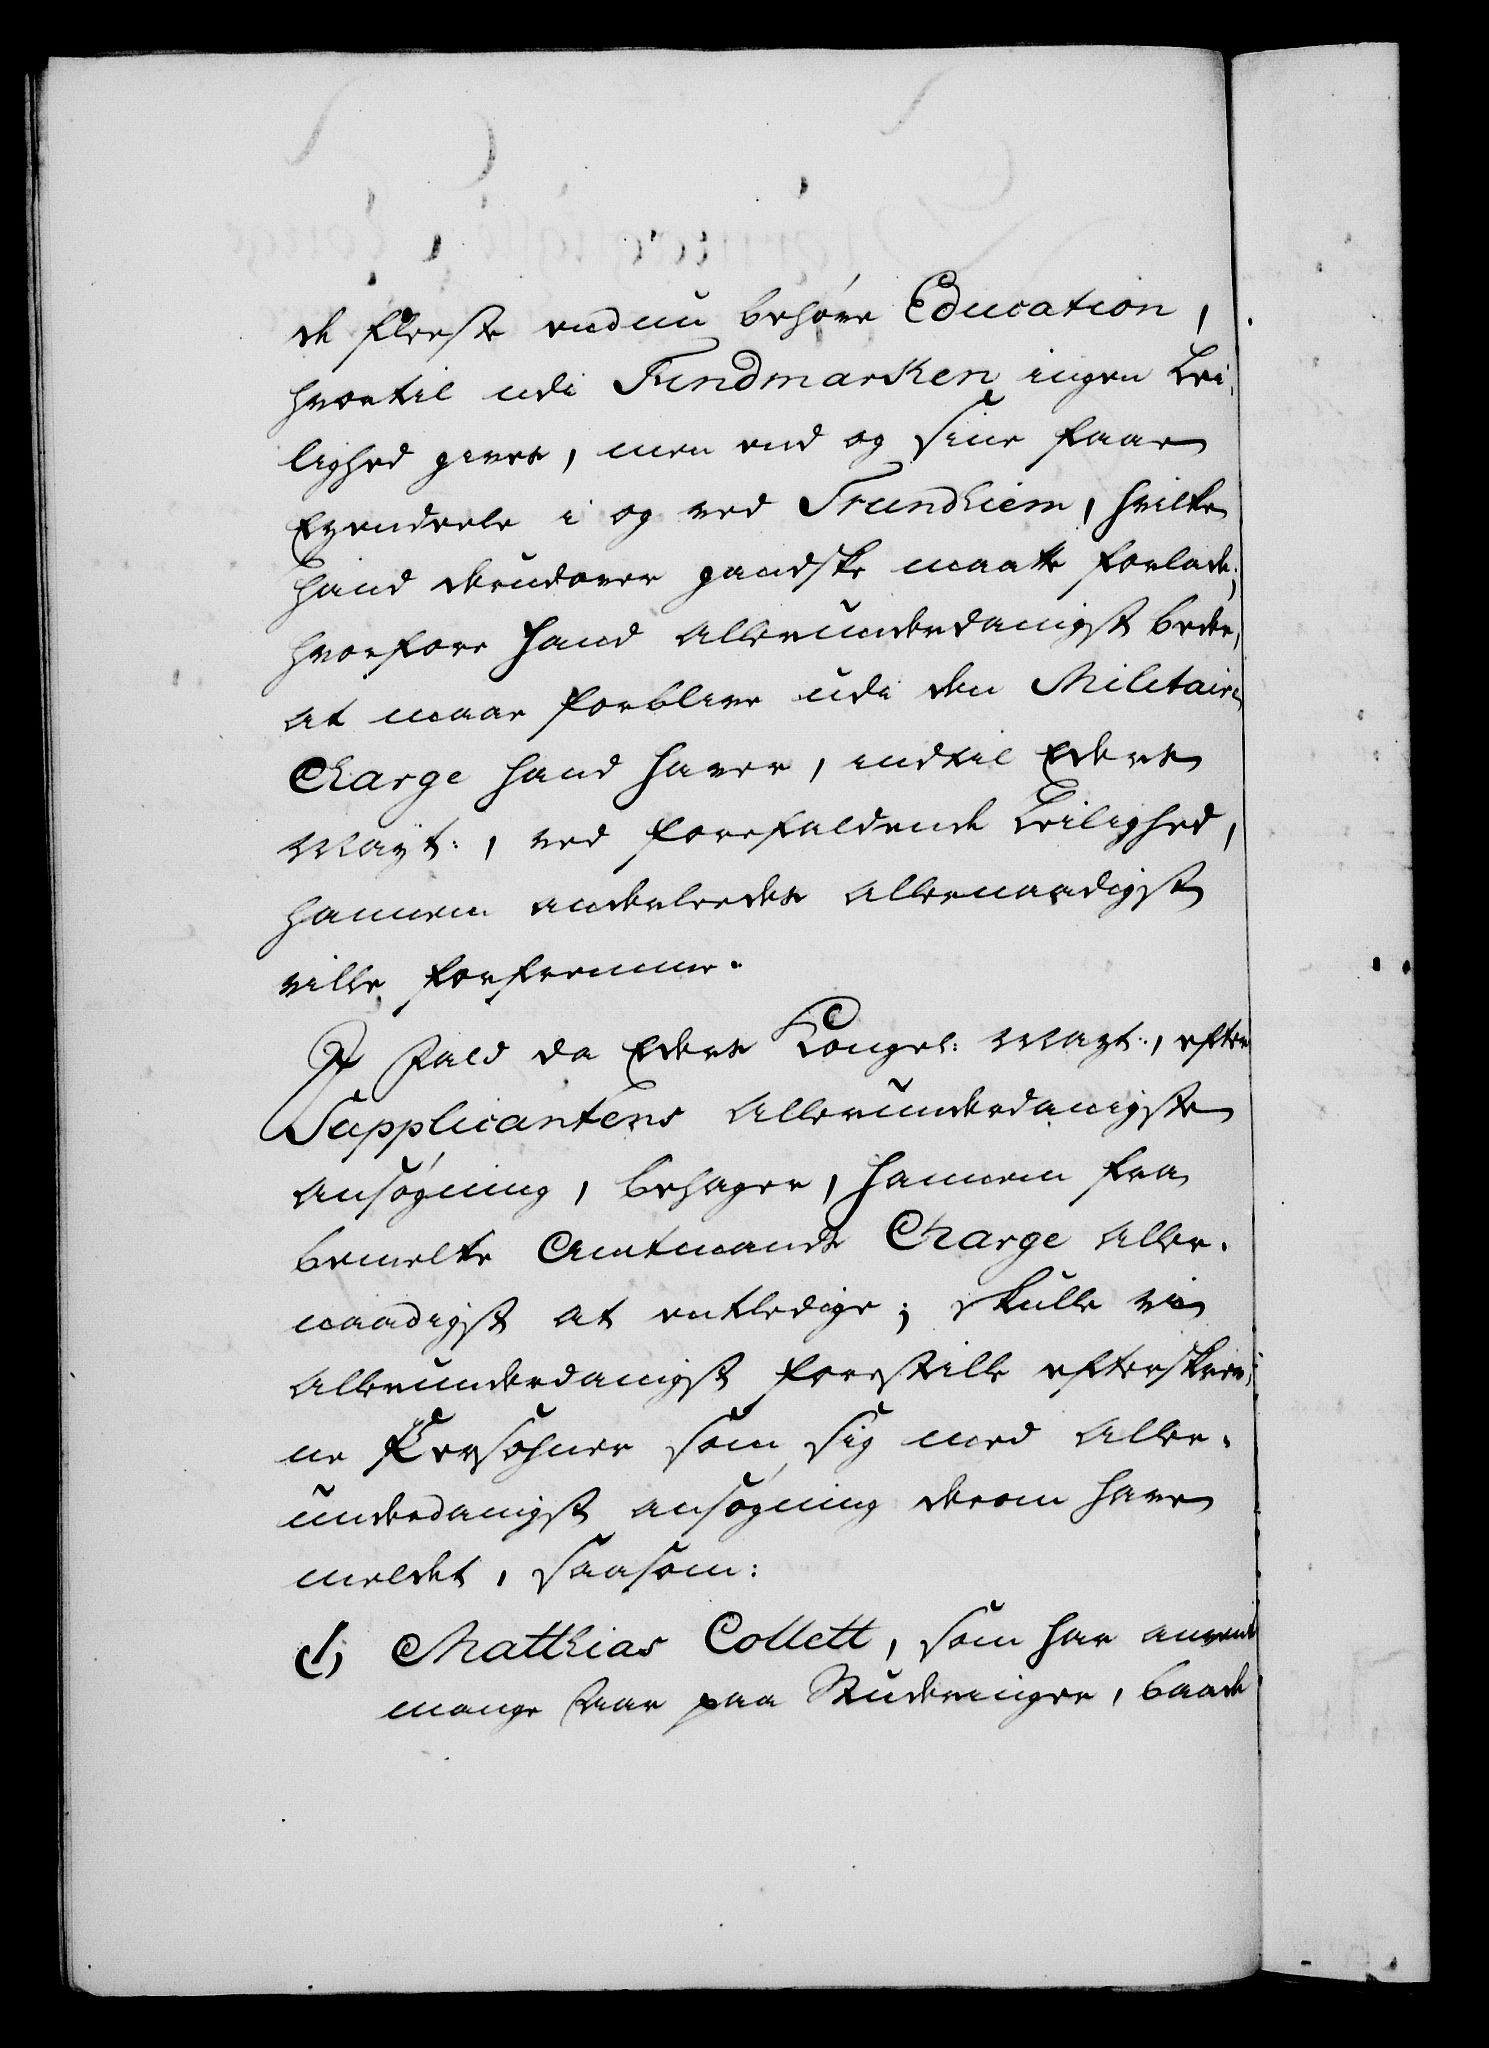 de fleeste endnu behøve Education,
hvortil udi Findmarken ingen Lei¬
lighed gives, men end og sine faae
Eyendeele i og ved Trundhiem, hvilke
hand derudover gandske maatte forlade;
hvorfore hand allerunderdanigst beder,
at maae forblive udi den Militaire
Charge hand haver, indtil Eders
Mayt:, ved forefaldende Leilighed,
hannem anderledes allernaadigst
ville forfremme.
I Fald da Eders Kongel: Mayt:, efter
Supplicantens allerunderdanigste
ansøgning, behager, hannem fra
bemelte Amtmands Charge aller¬
naadigst at entledige; skulle vi
allerunderdanigst forestille efterskrev¬
ne Persohner som sig med aller¬
underdanigst ansøgning derom have
meldet, saasom:
1) Matthias Collett, som har anvendt
mange Aar paa Studeringer, baade